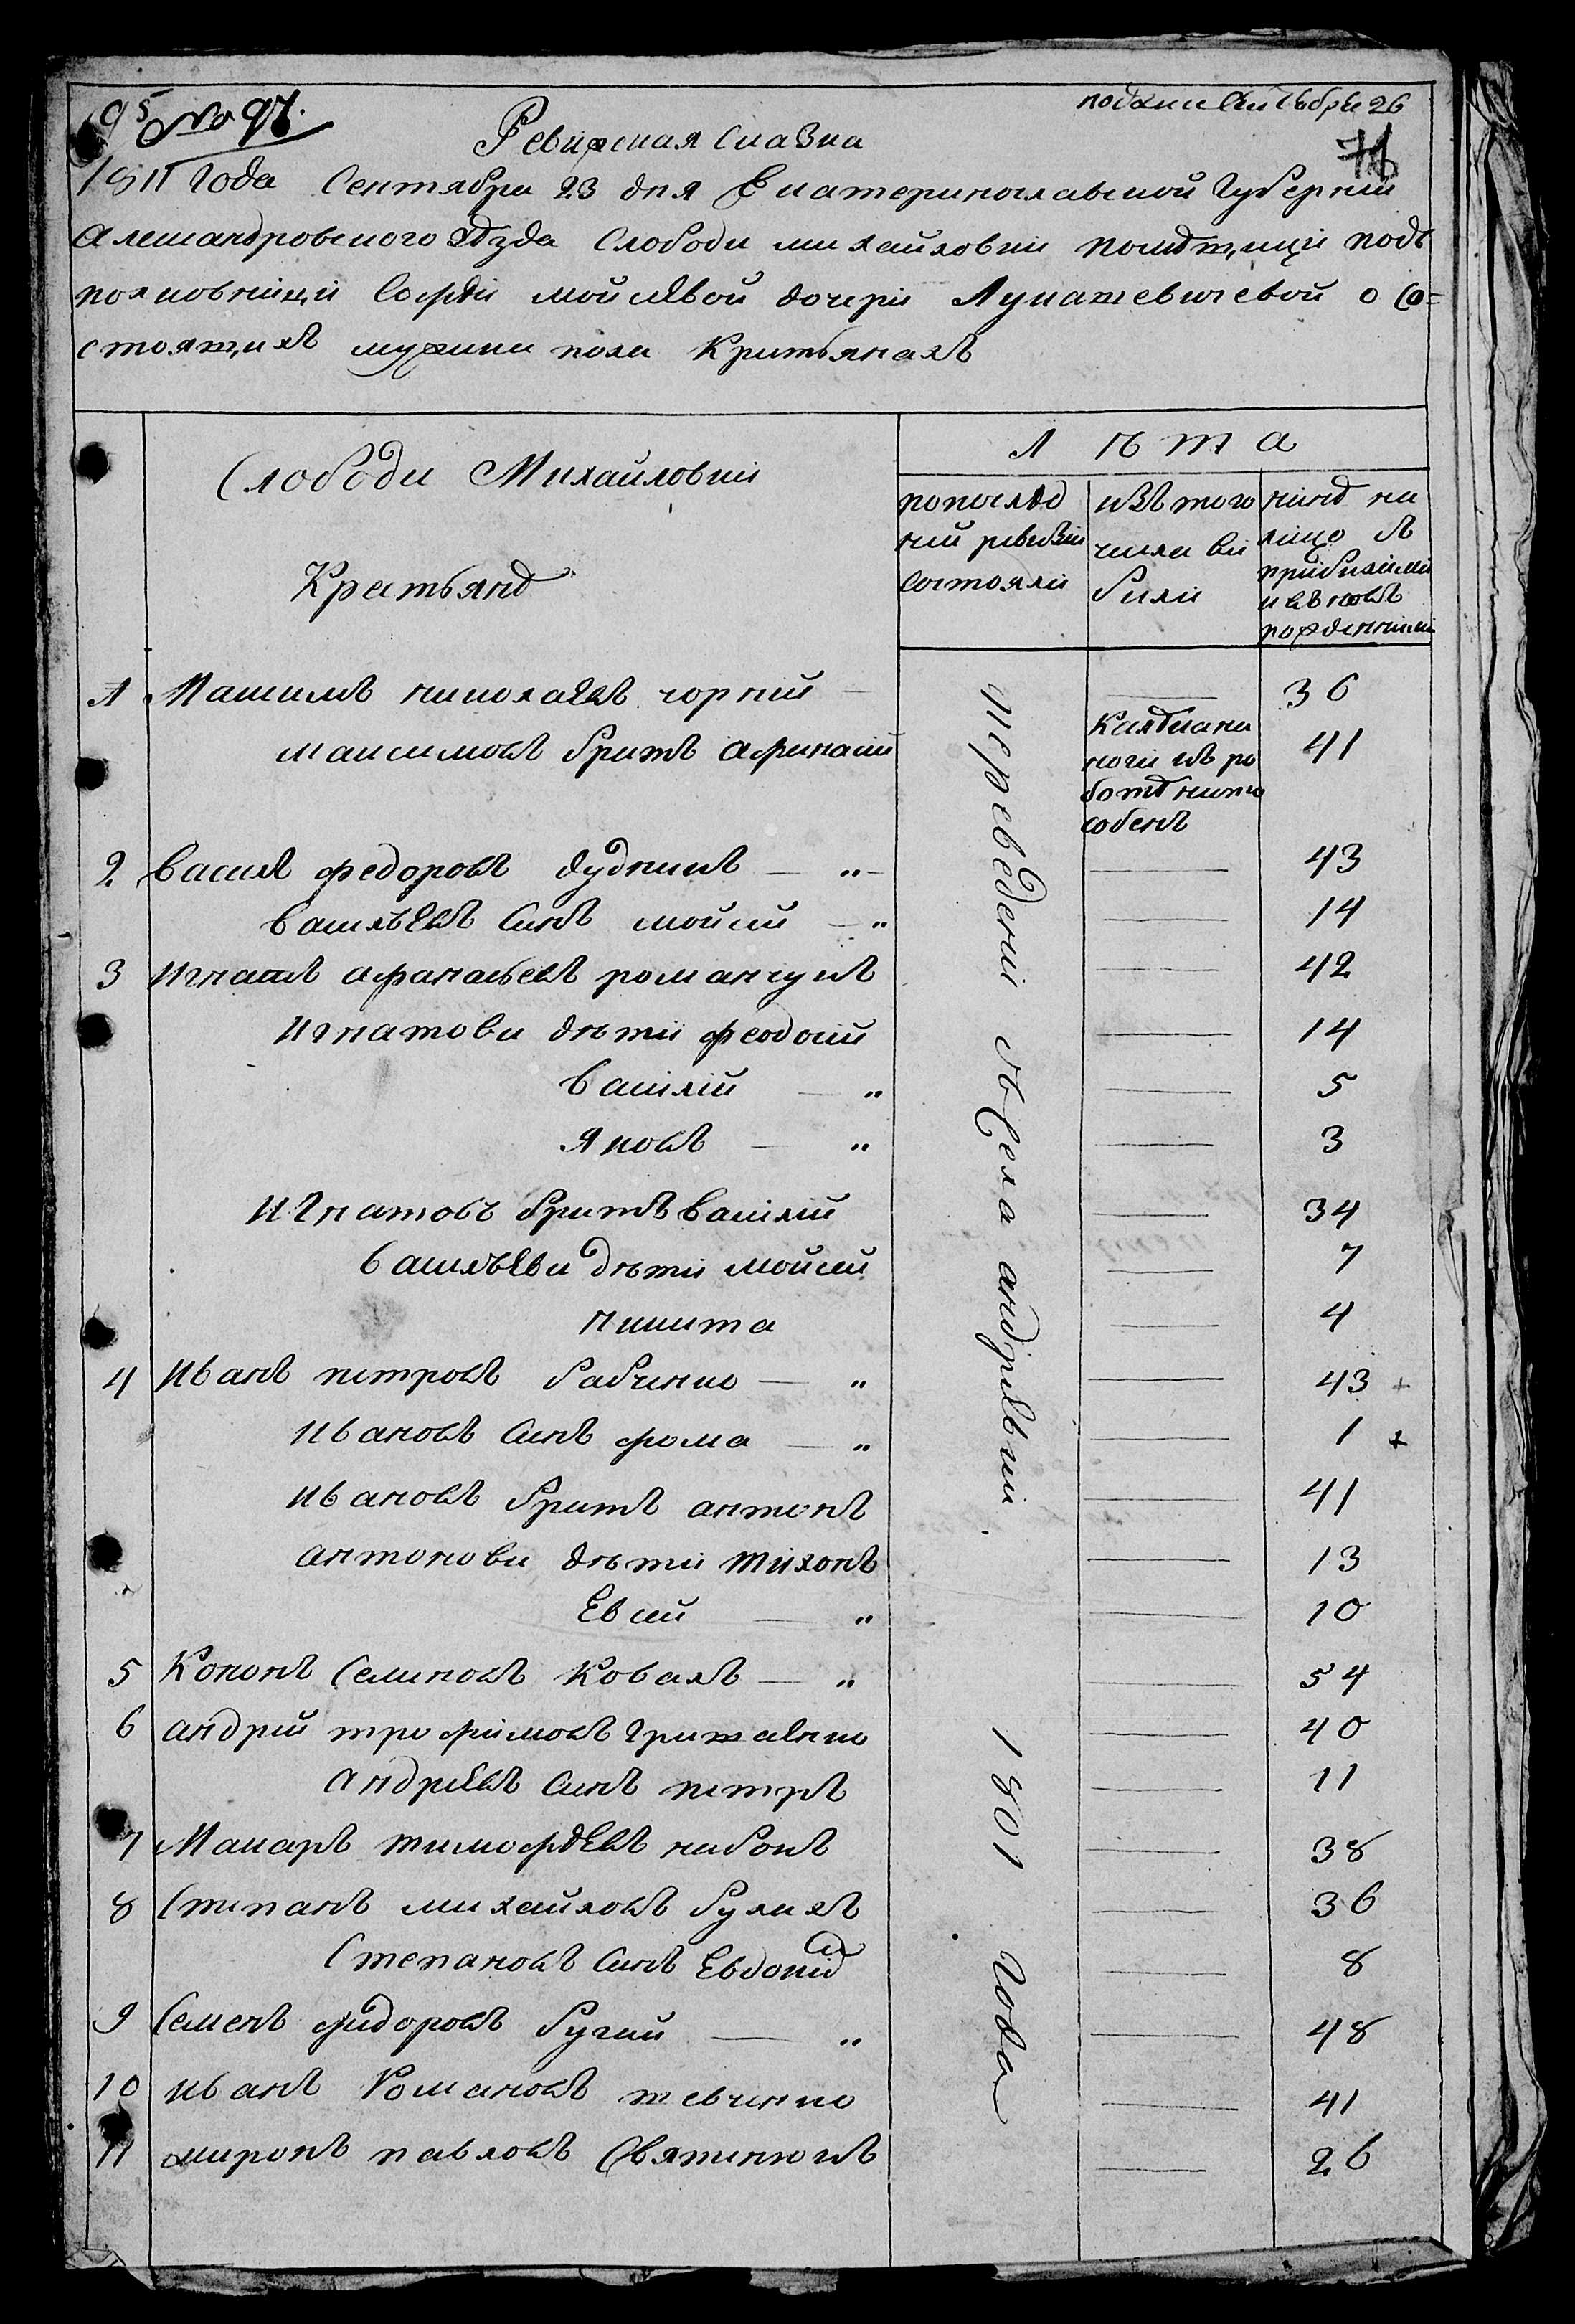 95 No 97.
подана Сентебря 26
71
Ревижская сказка
1811 года Сентября 23 дня Екатеринославской Губернии
александровского уезда Слободи михайловки помѣщици подъ
полковници Софѣи мойсѣевой дочери Лукашевичевой о со=
стоящихъ мужска пола Крестьянахъ
Л ѣ т а
Слободи Михайловки
Крестьянъ
попослед
ней ревизіи
состояли
изъ того
числа ви
били
нинѣ на
лицо съ
прибилими
и вновъ
рожденними
1 Максимъ николаевъ чорний 36
максимовъ братъ афанасий 41
Калѣка на
ноги къ ро
ботѣ нипо
собенъ
2 Василъ федоровъ дудникъ — " 43
васильевъ синъ мойсей — " 14
3 Игнатъ афанасьевъ романчукъ 42
Игнатови дѣти феодосий 14
Василий — " 5
Яковъ — " 3
Игнатовъ братъ василий 34
васильеви дѣти мойсей 7
никита 4
4 Иванъ петровъ бабченко — " 43 +
Ивановъ синъ фома — " 1 +
Ивановъ братъ антонъ 41
антонови дѣти тихонъ 13
Евсей — " 10
5 Кононъ Семеновъ Коваль — " 54
6 андрий трофимовъ 40
андриевъ синъ петръ 11
7 Макаръ тимофѣевъ набокъ 38
8 Степанъ михайловъ булахъ 36
Степановъ синъ Евдоким 8
9 Семенъ федоровъ бугай — " 48
10 иванъ Романовъ шевченко 41
11 миронъ павловъ Святенюкъ 26
Переведени съ Села андриевки
1801 Года